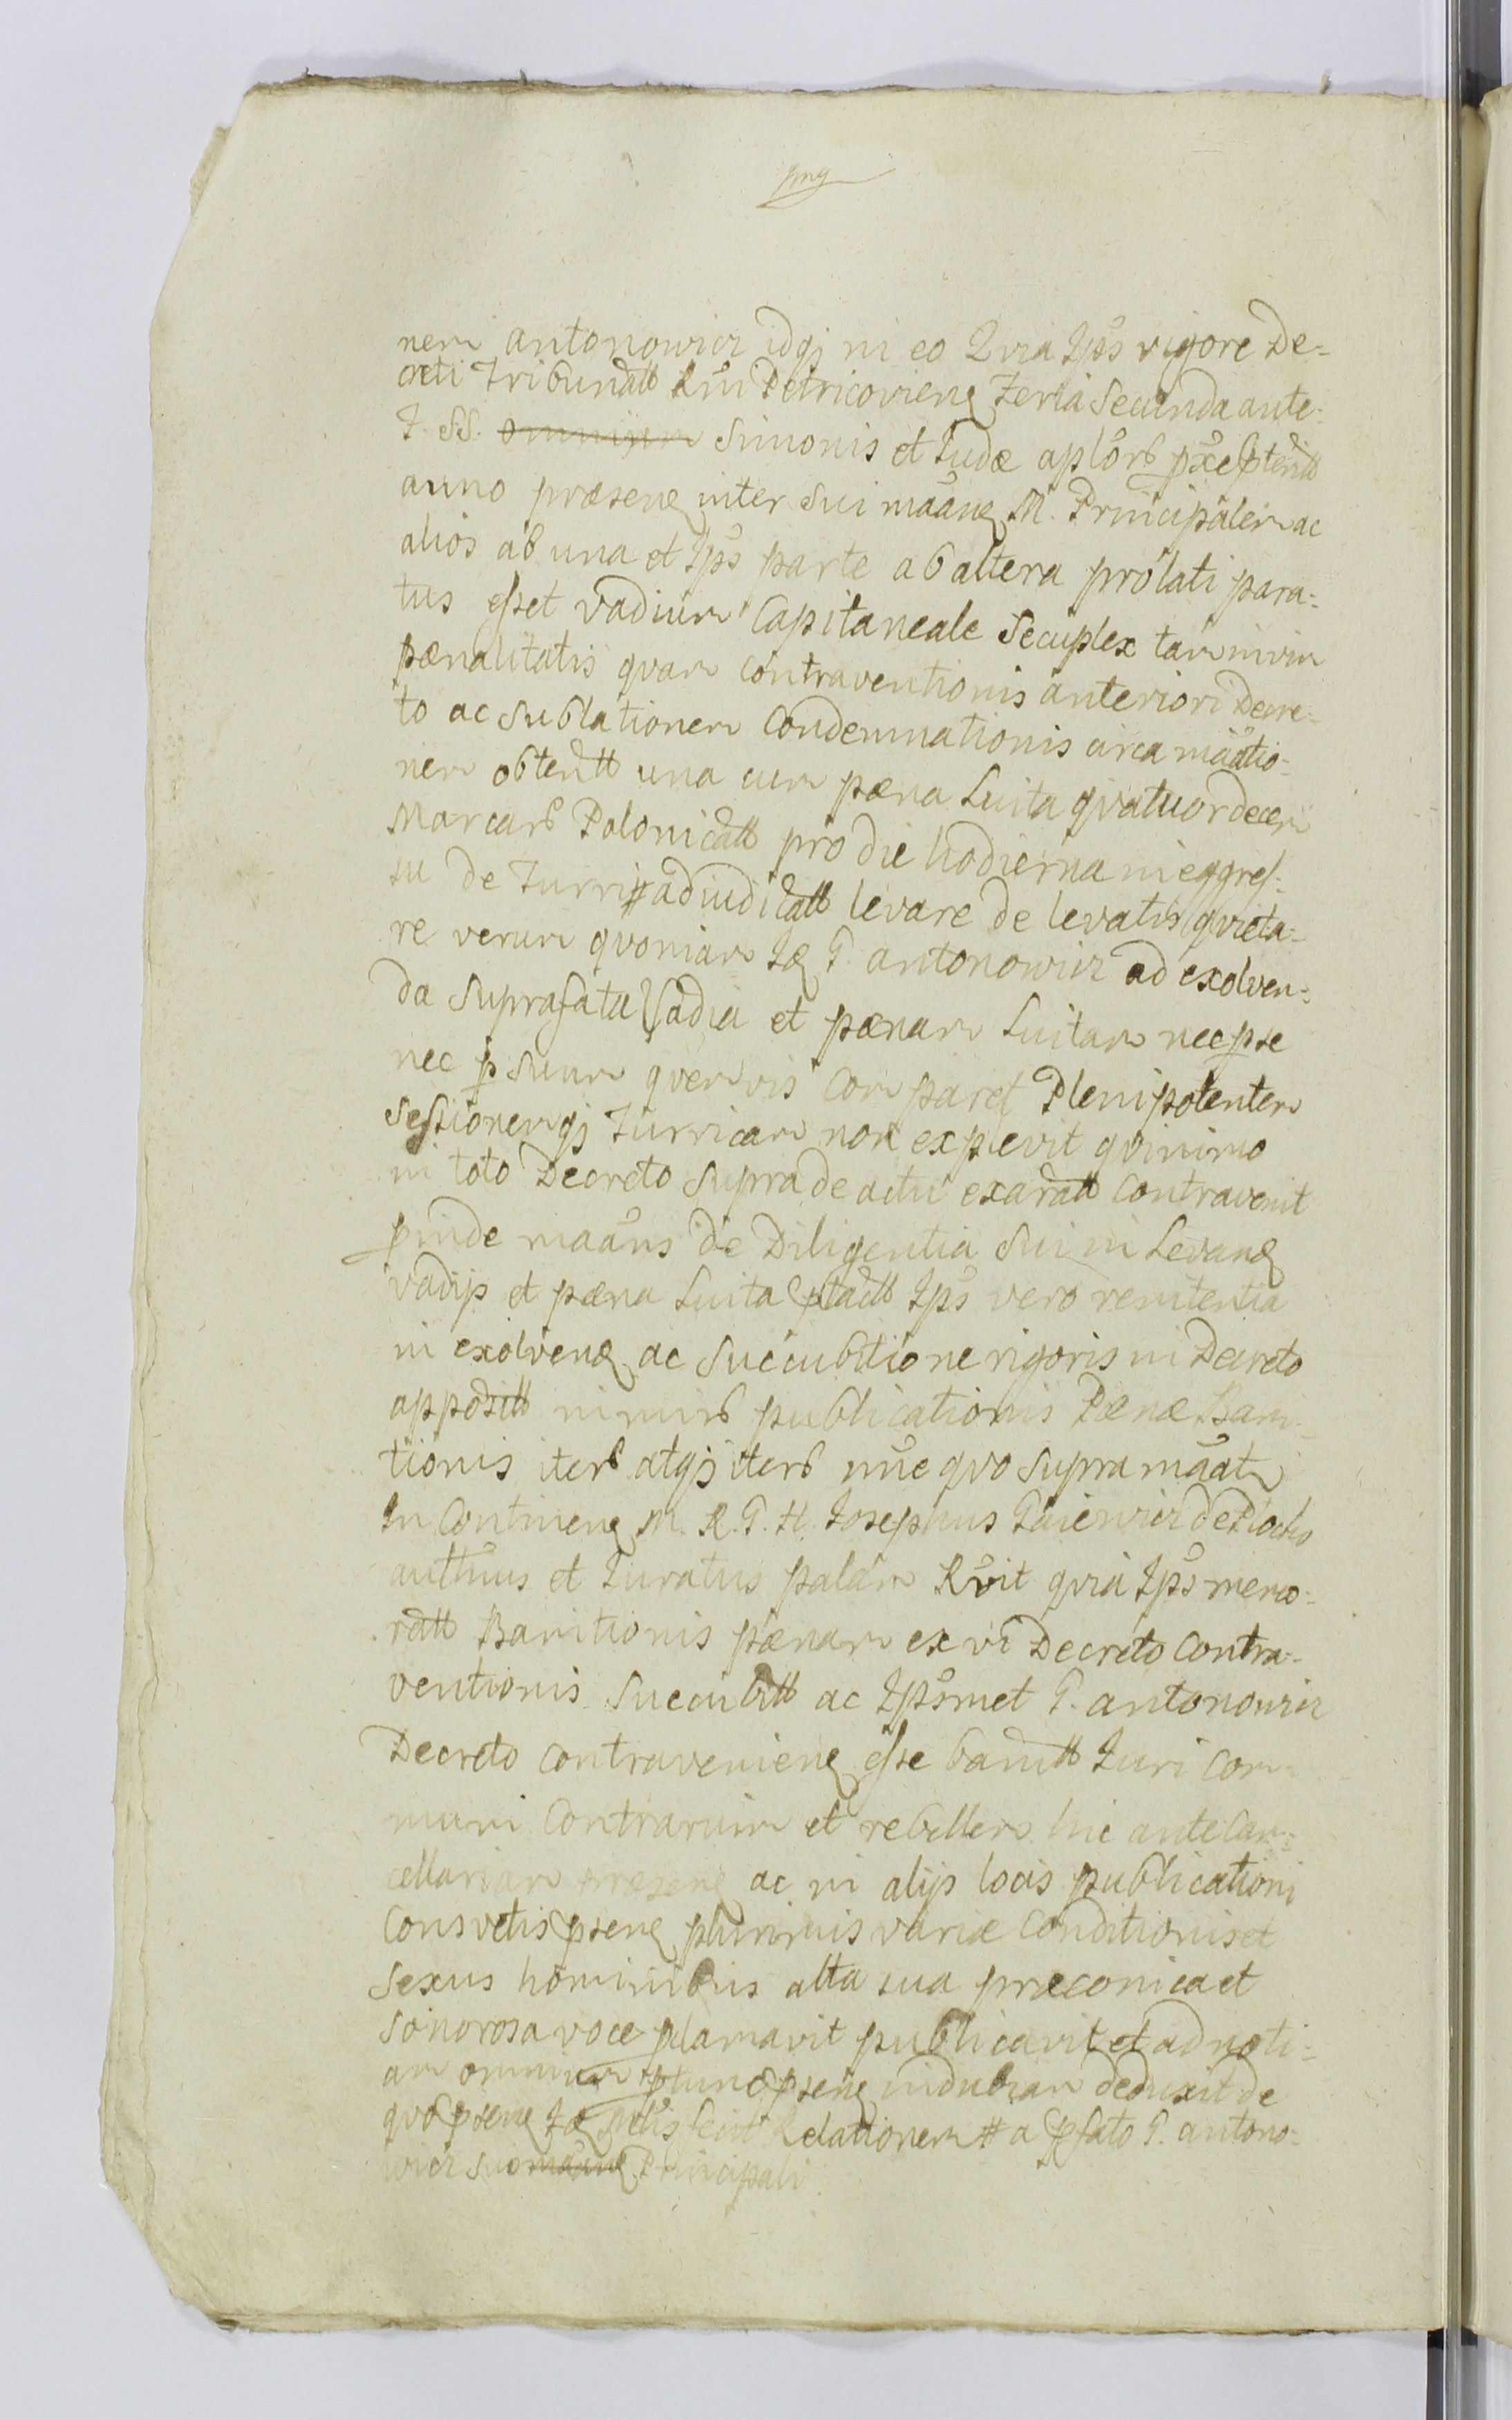 nem Antonowicz idqj in eo Qvia Ips vigore De-
creti Tribunall Rni Petricovien Feria Secunda ante
F. SS. omnium Simonis et Judæ aplorb
anno præsen inter Sui maan M. Principalem ac
alios ab una et Ips parte ab altera prolati para-
tus esset vadium Capitaneale Secuplex tam in vim
pænalitatis qvam contraventionis anteriori Decre-
to ac Sublationem Condemnationis circa maatio-
nem obtentt una cum pæna Luita qvatuordecem
Marcarb Polonicall pro die hodierna in eggres-
su de Turri adiudicatt levare de levatis qvieta-
re verum qvoniam G. Antonowicz ad exolven-
da Suprafata Vadia et pænam Luitam nec p se
nec p Suum qvemvis Comparet Plenipotentem
Sessionemqj Turricam non explevit qvinimo
in toto Decreto Supra de actu exaratt Contravenit
pinde maans de Diligentia Sui in Levan
vadijs et pæna Luita ptactt Ips vero renitentia
in exolven ac Succubitione rigoris in Decreto
appositt nimirb publicationis Pænæ Bani-
tionis iterb atqj iterb nne qvo supra maat
In Continen M. R. G. H. Josephus
autthus et Juratus palam Rvit qvia Ips memo-
ratt Banitionis pænam ex vi Decreto Contra-
ventionis Succubitt ac Ipsmet G. Antonowicz
Decreto Contravenien esse banitt Juri Com-
muni Contrarium et rebellem hic ante Can-
cellariam præsen ac in alijs locis publicationi
Consvetis psen plurimis variæ Conditionis et
Sexus hominibus alta sua præconica et
Sonorosa voce pclamavit publicavit et ad noti-
am omnium psen indubiam deduxit de
qvo psen fecit Relationem # a pfato G. Antono-
wicz suo maan Principali